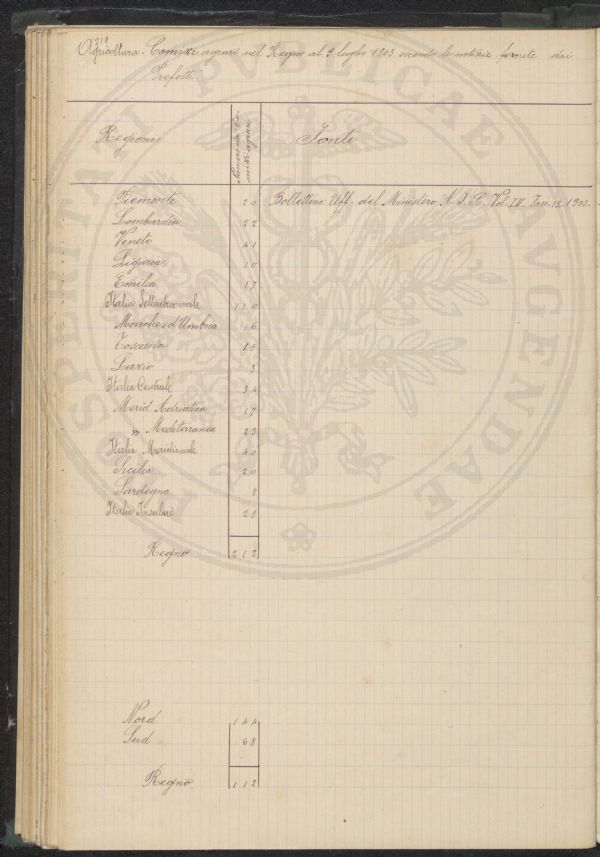 210
Agricoltura. Comizi agrari nel Regno al 9 luglio 1903 secondo le notizie fornite dai
Prefetti
Regioni Numero dei Comizi agrari Fonti
Piemonte 20 Bollettino Uff. del Ministero A. I. C. Vol. IV. Fasc. 13. 1903.
Lombardia 22
Veneto 41
Liguria 10
Emilia 17
Italia Settentrionale 110
Marche ed Umbria 16
Toscana 15
Lazio 3
Italia Centrale 34
Merid. Adriatica 17
" Mediterranea 23
Italia Meridionale 40
Sicilia 20
Sardegna 8
Italia Insulare 28
Regno 212
Nord 144
Sud 68
Regno 112
PUBLICAE AUGENDAE PROSPERITATI